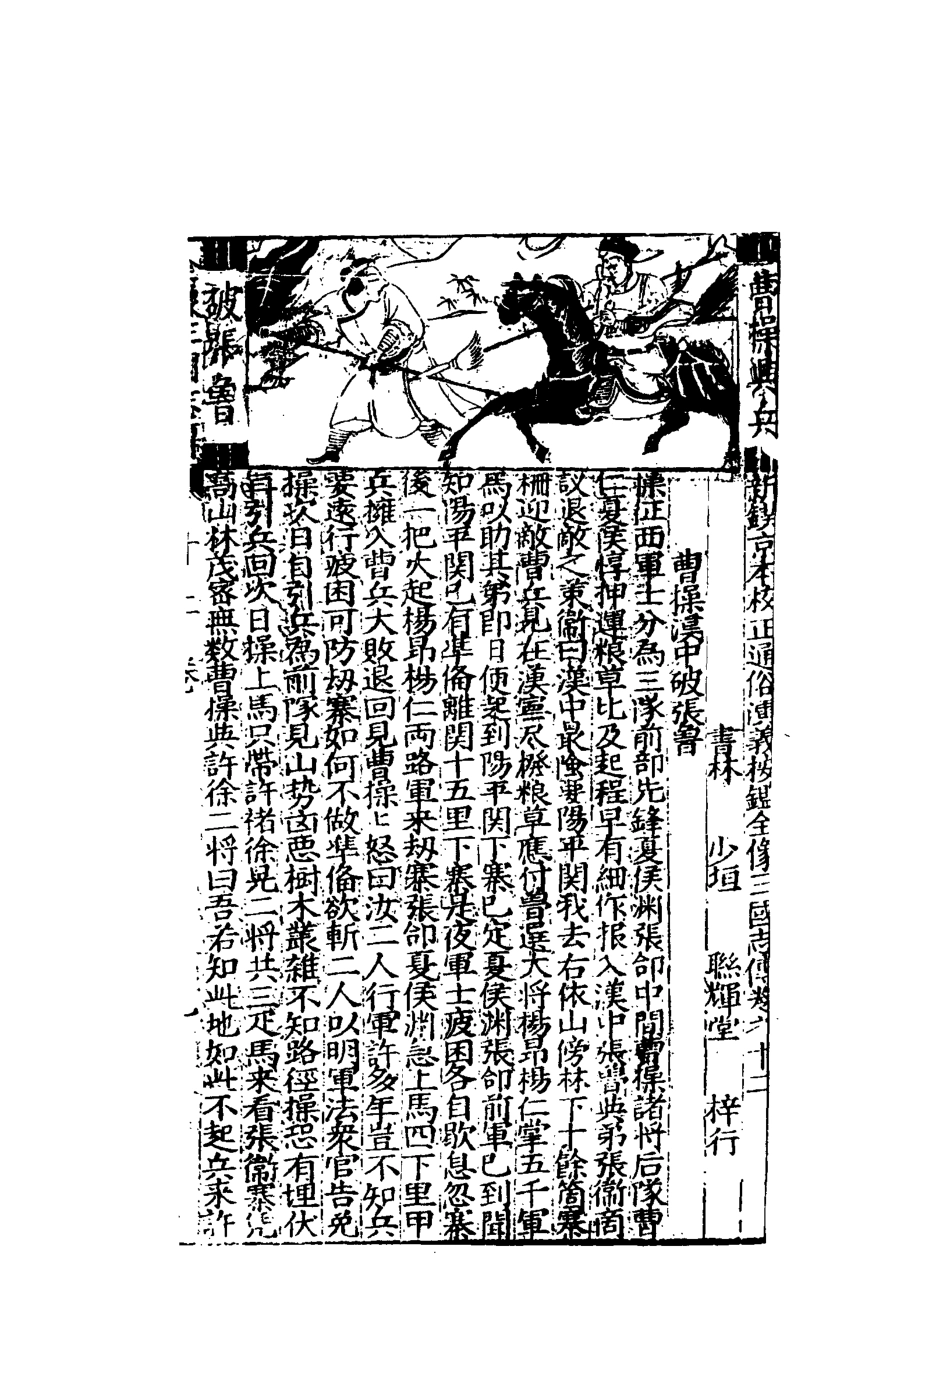 曹操興兵
破張魯
新鋟京本校正通俗演義按鑑全像三國志傳卷之十二
書林 少垣 聯輝堂 梓行
曹操漢中破張魯
操征西軍士分為三隊前部先鋒夏侯渊張郃中間曹操諸将后隊曹
仁夏侯惇押運粮草比及起程早有細作报入漢中張魯与弟張衛商
議退敵之策衛曰漢中最険要陽平関我去右依山傍林下十餘箇寨
柵迎敵曹兵兄在漢寧尽撥粮草應付魯選大将楊昂楊仁掌五千軍
馬以助其弟即日便起到陽平関下寨已定夏侯渊張郃前軍已到聞
知陽平関已有準俻離関十五里下寨是夜軍士疲困各自歇息忽寨
後一把火起楊昂楊仁両路軍来刼寨張郃夏侯渊急上馬四下里甲
兵擁入曹兵大敗退回見曹操匕怒曰汝二人行軍許多年豈不知兵
要遠行疲困可防刼寨如何不做準俻欲斬二人以明軍法衆官告免
操次日自引兵為前隊見山势凶悪樹木叢雜不知路徑操恐有埋伏
再引兵回次日操上馬只帶許褚徐晃二将共三疋馬来看張衛寨
高山林茂宻無数曹操与許徐二将曰吾若知此地如此不起兵来許